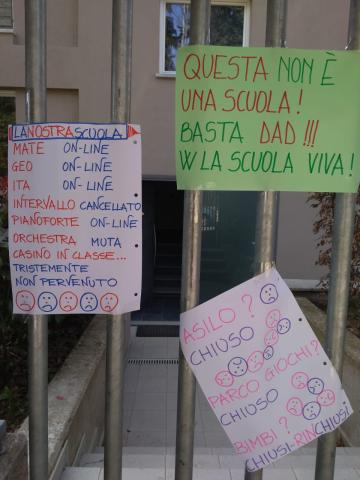 LA NOSTRA SCUOLA
MATE ON-LINE
GEO ON-LINE
ITA ON-LINE
INTERVALLO CANCELLATO
PIANOFORTE ON-LINE
ORCHESTRA MUTA
CASINO IN CLASSE...
TRISTEMENTE
NON PERVENUTO
QUESTA NON È
UNA SCUOLA!
BASTA DAD !!!
W LA SCUOLA VIVA!
ASILO?
CHIUSO
PARCO GIOCHI?
CHIUSO
BIMBI?
CHIUSI-RINCHIUSI